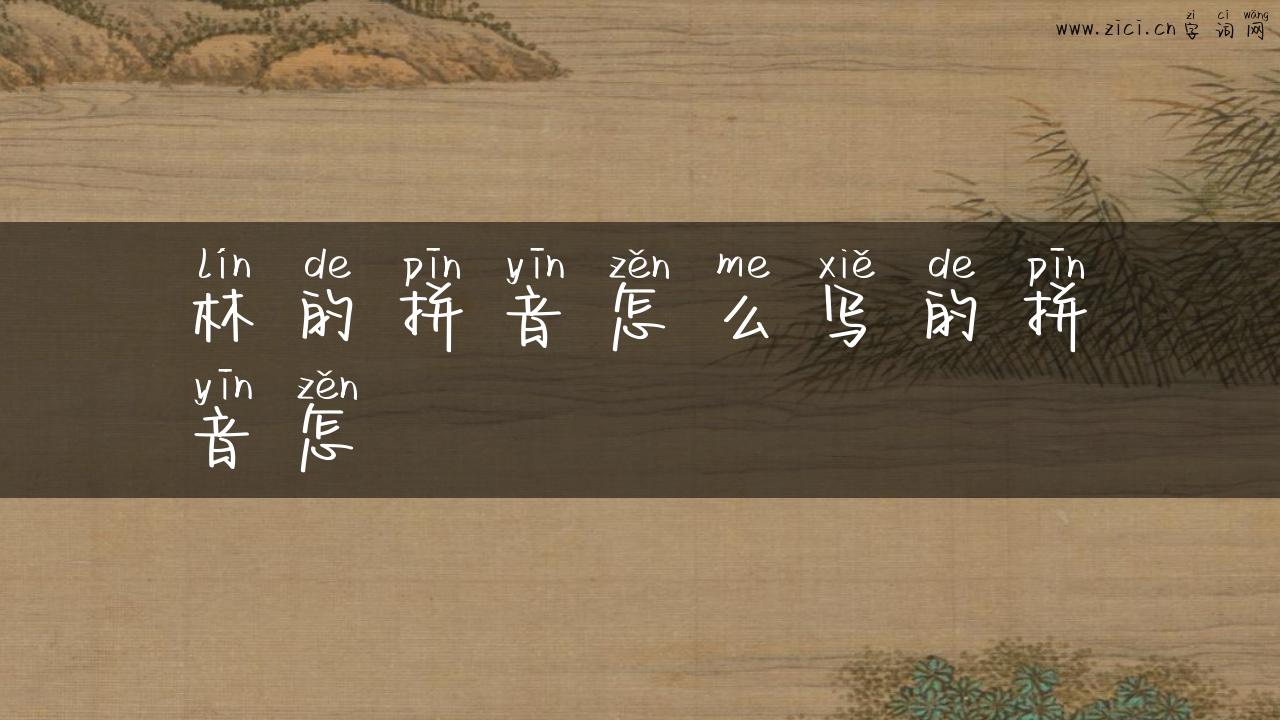 zì cí wǎng
www.zici.cn 字词网
lín de pīn yīn zěn me xiě de pīn
林的拼音怎么写的拼
yīn zěn
音怎